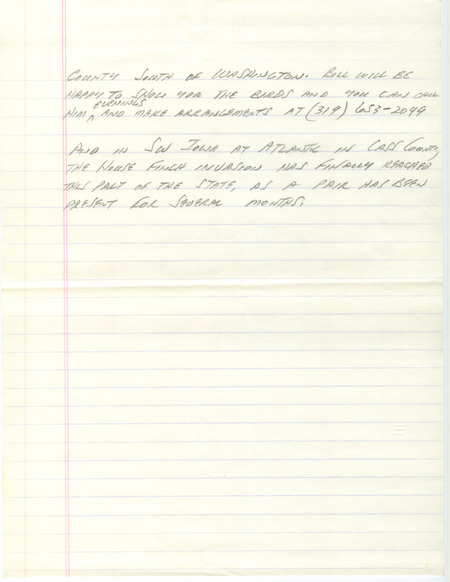 COUNTY SOUTH OF WASHINGTON. BILL WILL BE
HAPPY TO SHOW YOU THE BIRDS AND YOU CAN CALL
EVENINGS
HIM ^ AND MAKE ARRANGEMENTS AT (319) 653-2049
AND IN SW IOWA AT ATLANTIC IN CASS COUNTY,
THE HOUSE FINCH INVASION HAS FINALLY REACHED
THIS PART OF THE STATE, AS A PAIR HAS BEEN
PRESENT FOR SEVERAL MONTHS.